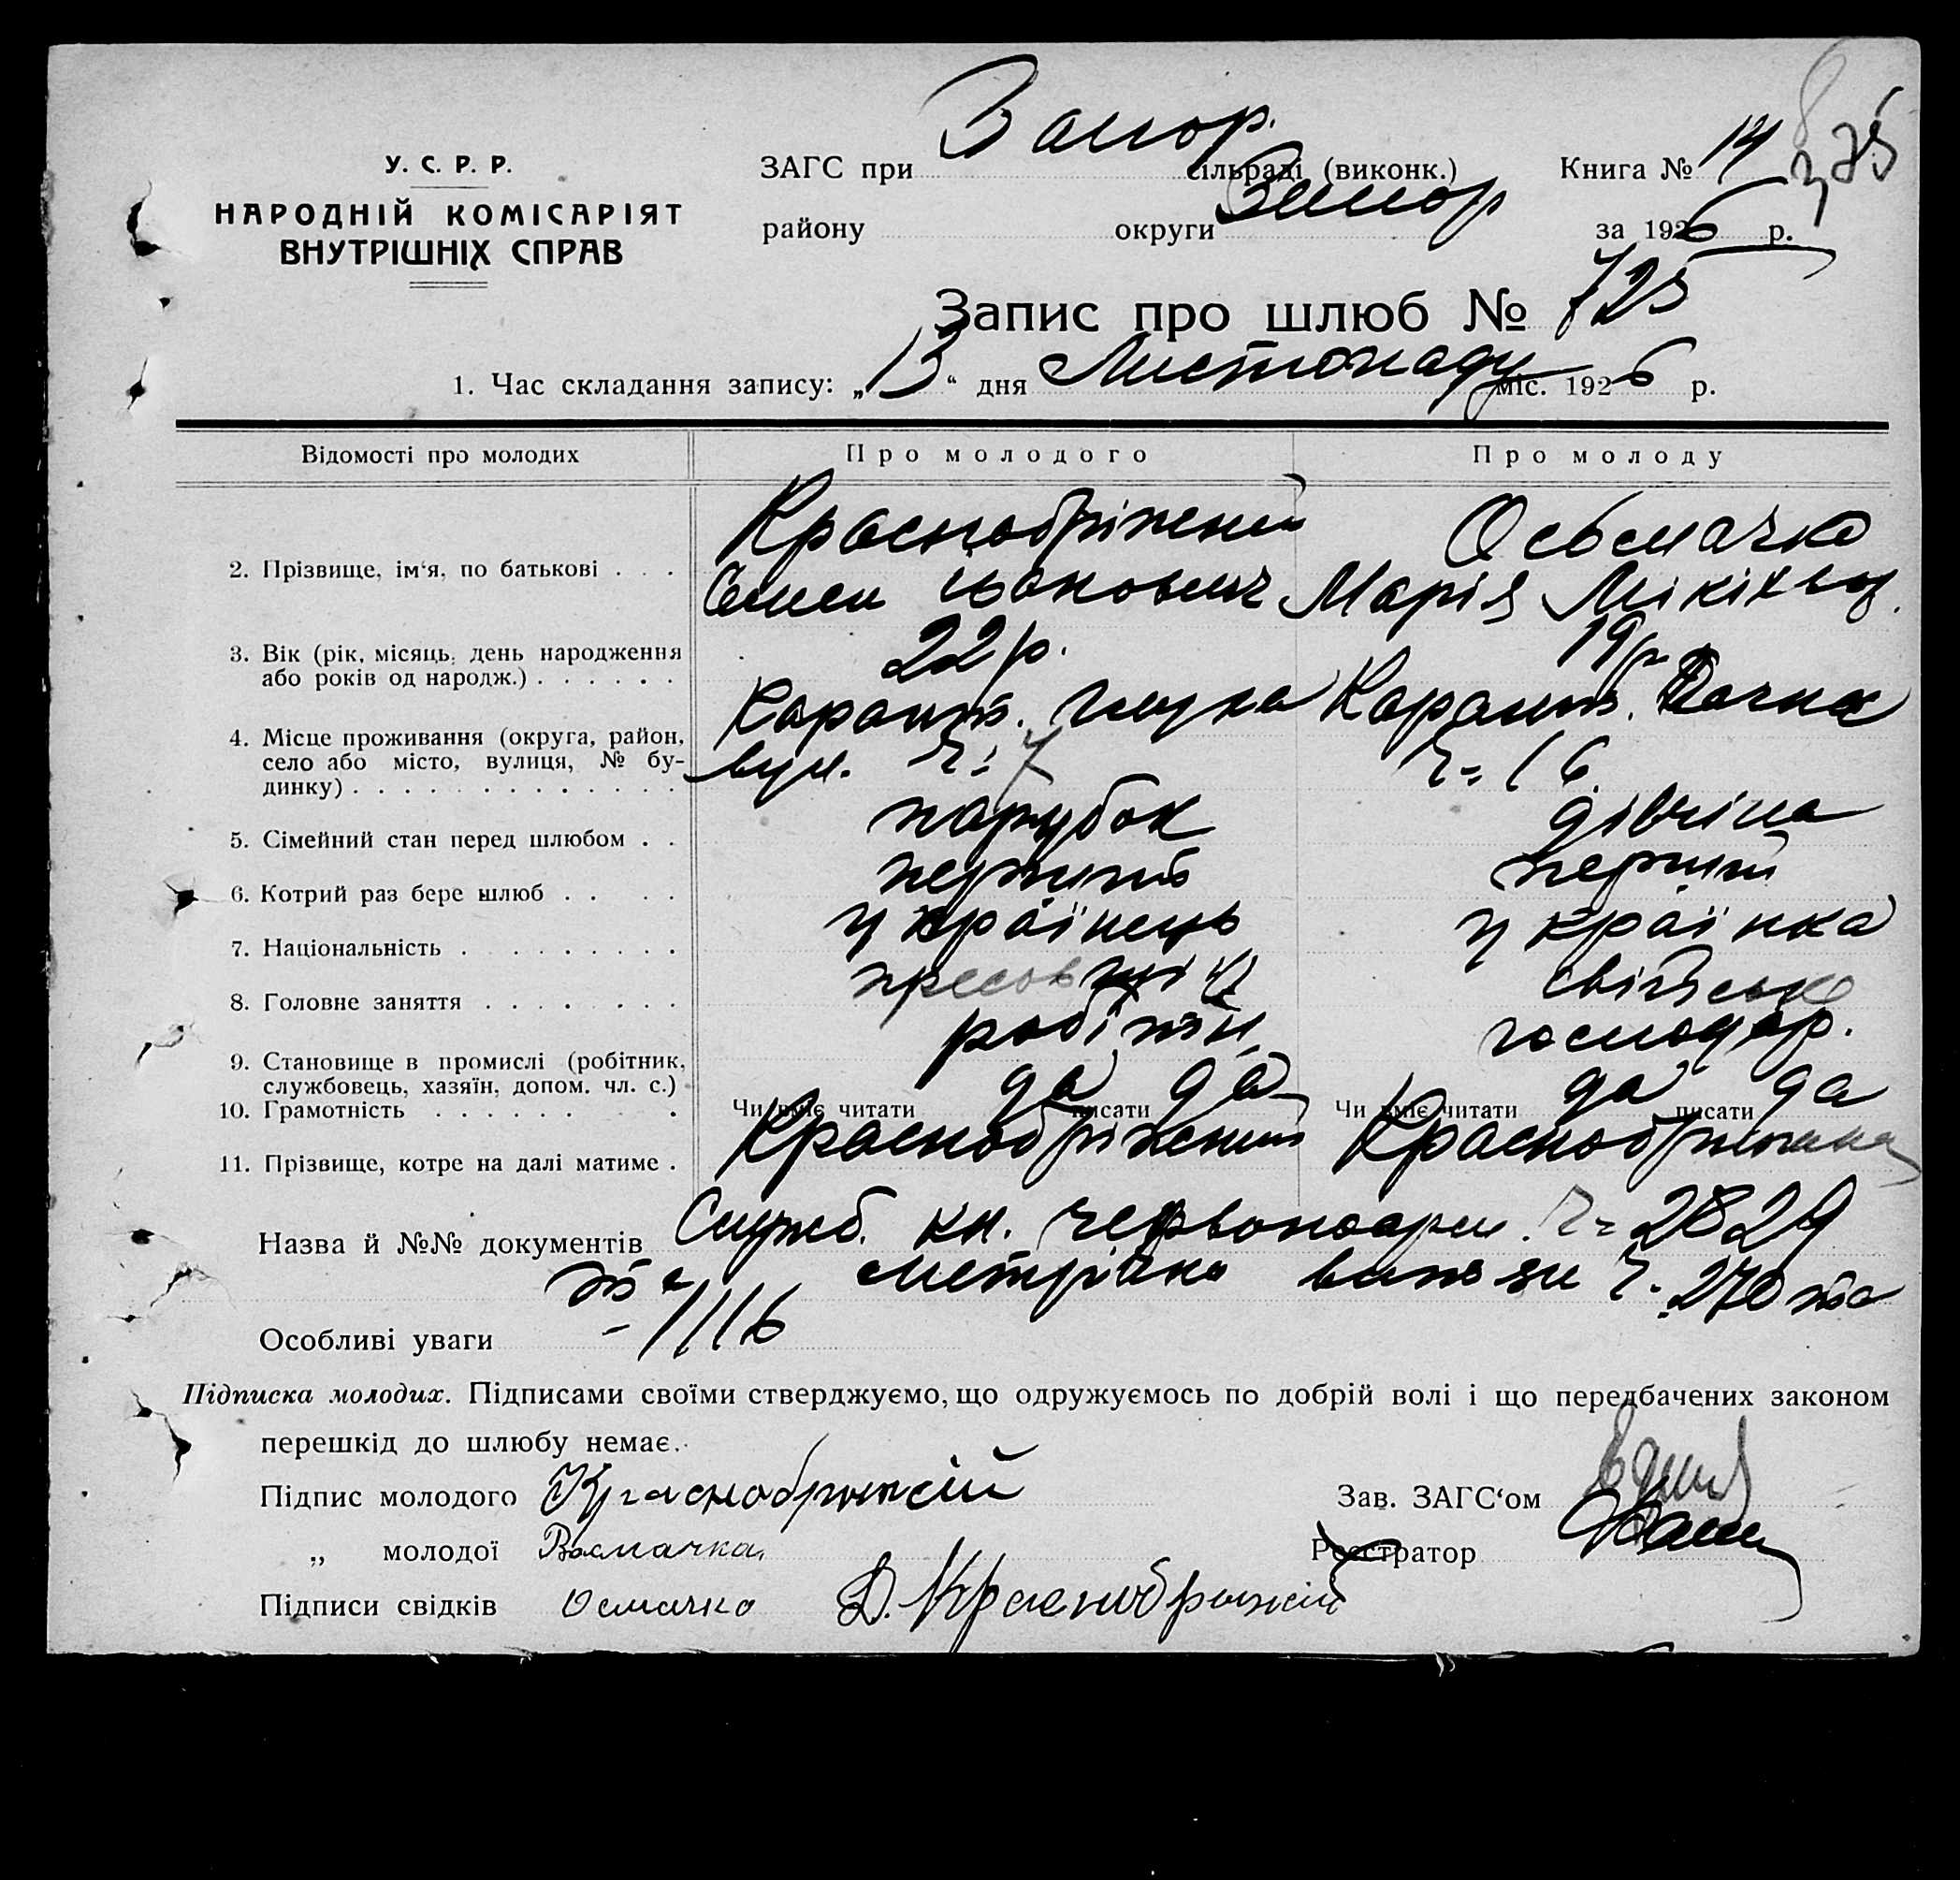 У. С. Р. Р.
НАРОДНІЙ КОМІСАРІЯТ
ВНУТРІШНІХ СПРАВ
ЗАГС при Запор. сільраді (виконк.) Книга № 14
району округи Запор за 1926 р.
Запис про шлюб № 725
1. Час складання запису: „13“ дня Листопаду міс. 1926 р.
Відомості про молодих Про молодого Про молоду
2. Прізвище, ім‘я, по батькові . . . Краснобріжений Осьмачко
Семен Марія
3. Вік (рік, місяць, день народження 22 р. 19 р.
або років од народж.) . . . . . .
4. Місце проживання (округа, район, Карант. Карант.
село або місто, вулиця, № бу- вул. 7 16
динку) . . . . . . . . . . . . .
5. Сімейний стан перед шлюбом . . парубок дівчіна
6. Котрий раз бере шлюб . . . . перший перший
7. Національність . . . . . . . . . українець українка
8. Головне заняття . . . . . . .
9. Становище в промислі (робітник, робітн. господар.
службовець, хазяїн, допом. чл. с.)
10. Грамотність . . . . . . . . Чи вміє читати да писати да Чи вміє читати да писати да
11. Прізвище, котре на далі матиме . Краснобріжений
Назва й №№ документів Служб. кн. червоноарм. 2829
метрічна 270 та
1116
Особливі уваги
Підписка молодих. Підписами своїми стверджуємо, що одружуємось по добрій волі і що передбачених законом
перешкід до шлюбу немає.
Підпис молодого Зав. ЗАГС‘ом
„ молодої Реєстратор
Підписи свідків Осмачко Д.